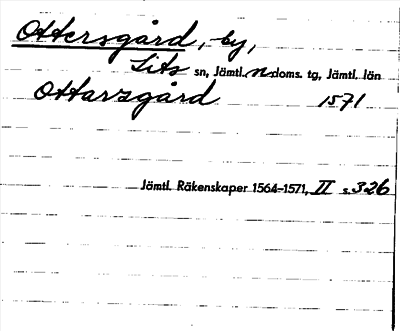 Ottersgård, by,
Lits sn, Jämtl. n. doms. tg, Jämtl. län
Ottarsgård 1571
Jämtl. Räkenskaper 1564-1571, II s. 326